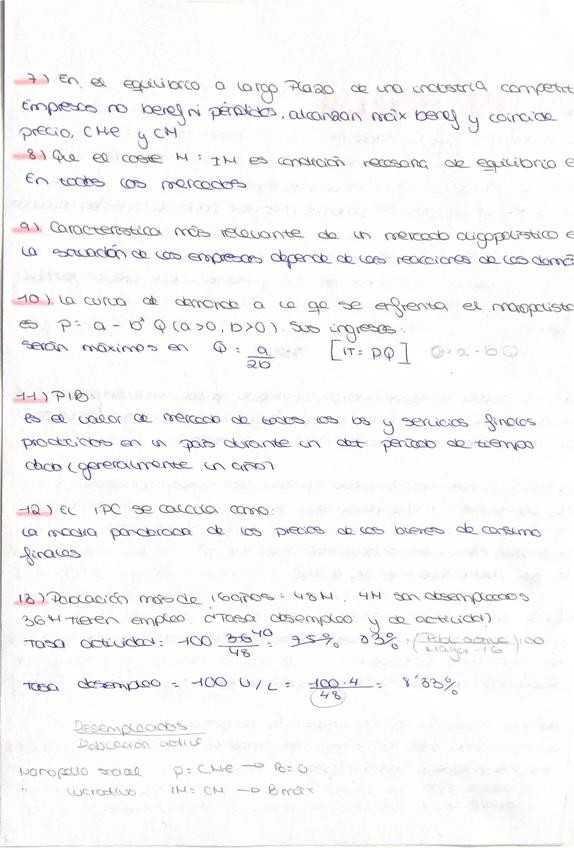 7) En el equilibrio a largo Plazo de una industria competit
Empresas no benef ni pérdidas, alcanzan máx benef y coincide
precio, CMe y CM
8) Que el coste M = IM es condición necesaria de equilibrio e
En todos los mercados
9) Característica más relevante de un mercado oligopolístico e
La situación de las empresas depende de las reacciones de las demá
10) La curva de demanda a la qe se enfrenta el monopolista
es P = a - b* Q (a>0, b>0). Sus ingresos.
serán máximos en Q = a/2b [IT = PQ] 0 = a - bQ
11) PIB:
es el valor de mercado de todos los bs y servicios finales
producidos en un país durante un det período de tiempo
dado (generalmente un año)
12) El IPC se calcula como:
La media ponderada de los precios de los bienes de consumo
finales
13) Población más de 16 años = 48M. 4M son desempleados
36M tienen empleo ¿Tasa desempleo y de actividad?
Tasa actividad = 100 36 40/48 = 95% 83% (Pobl. activa/Mayor 16) 100
Tasa desempleo = 100 U/L = 100·4/48 = 8'33%
Desempleados
Población activa
Monopolio social P = CMe → B=0
" lucrativo IM = CM → B máx